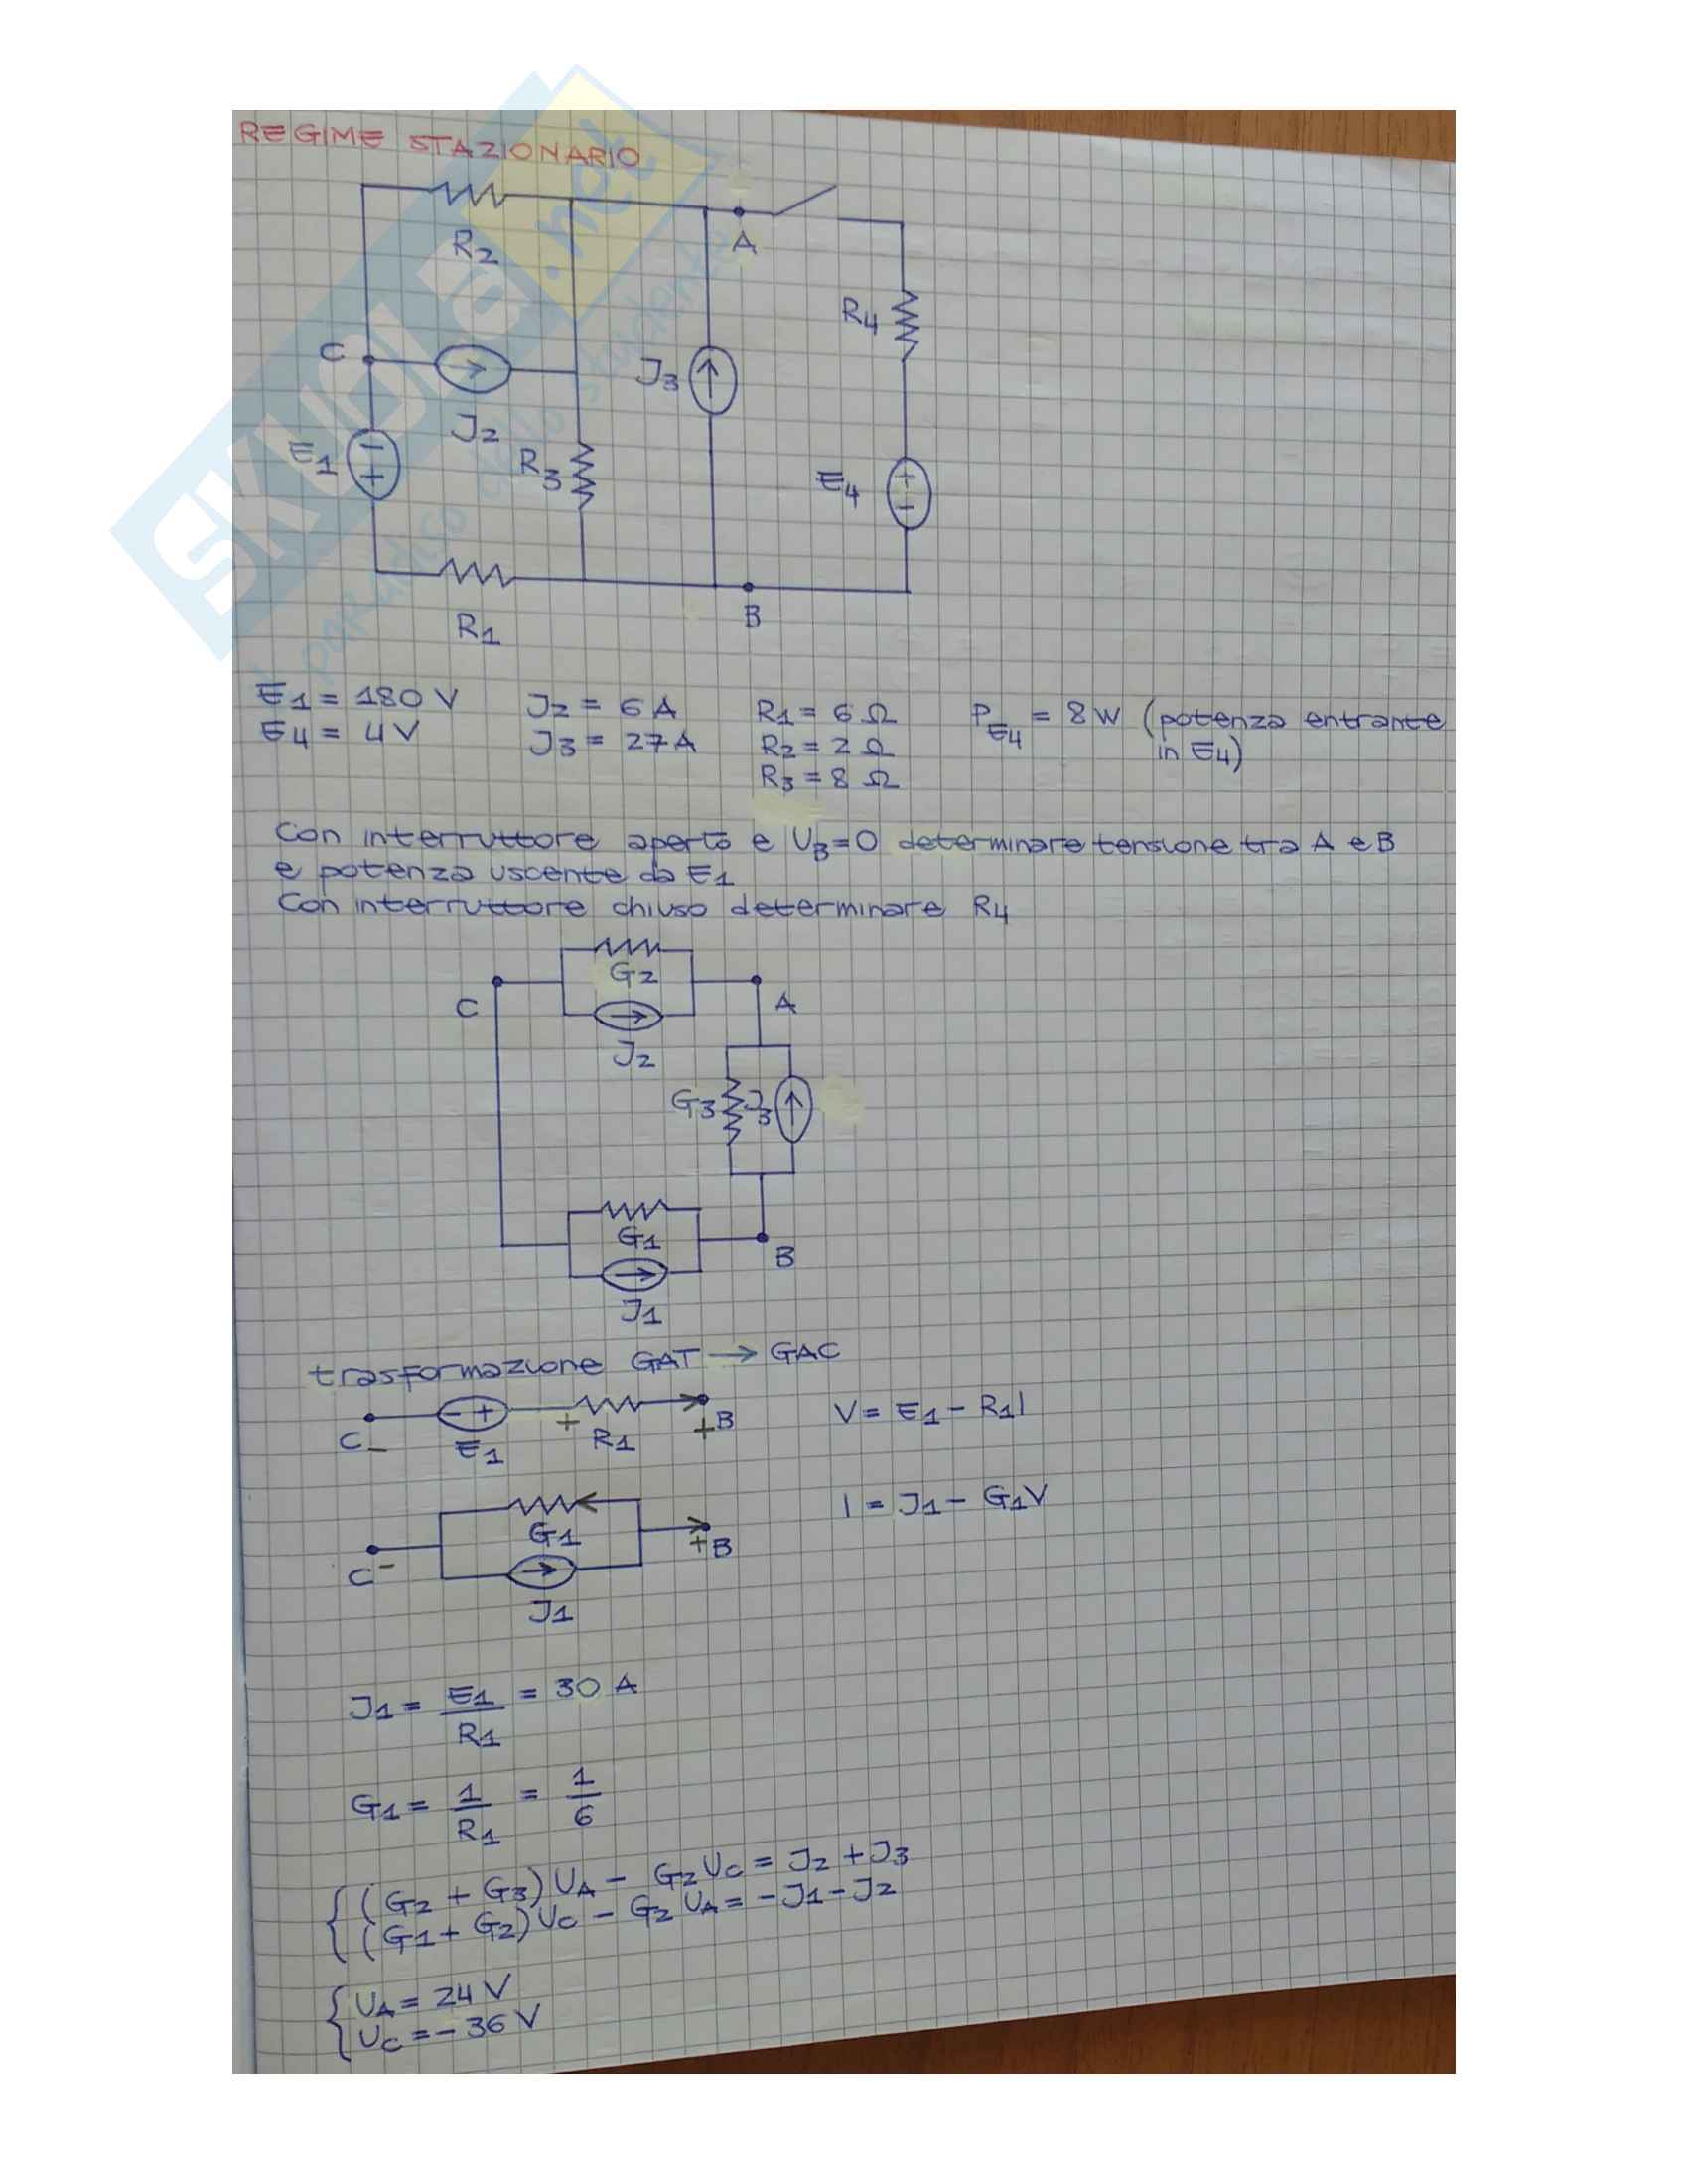 REGIME STAZIONARIO
R2
A
R4
C
J3
J2
E1
- +
R3
E4
+ -
B
R1
E1 = 180 V J2 = 6 A R1 = 6 Ω P_E4 = 8 W (potenza entrante
E4 = 4 V J3 = 27 A R2 = 2 Ω in E4)
R3 = 8 Ω
Con interruttore aperto e UB=0 determinare tensione tra A e B
e potenza uscente da E1
Con interruttore chiuso determinare R4
G2
C A
J2
G3 J3
G1
B
J1
trasformazione GAT → GAC
- + + B V = E1 - R1 I
C - E1 R1 +
G1 I = J1 - G1 V
C - + B
J1
J1 = E1/R1 = 30 A
G1 = 1/R1 = 1/6
{ (G2 + G3) UA - G2 UC = J2 + J3
(G1 + G2) UC - G2 UA = - J1 - J2
{ UA = 24 V
UC = - 36 V
SKUOLA.net